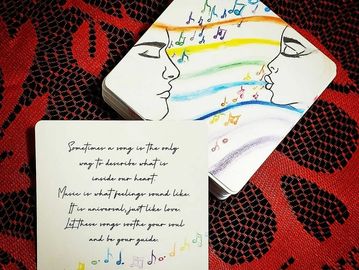 Sometimes a song is the only
way to describe what is
inside our heart.
Music is what feelings sound like.
It is universal, just like love.
Let these songs soothe your soul
and be your guide.